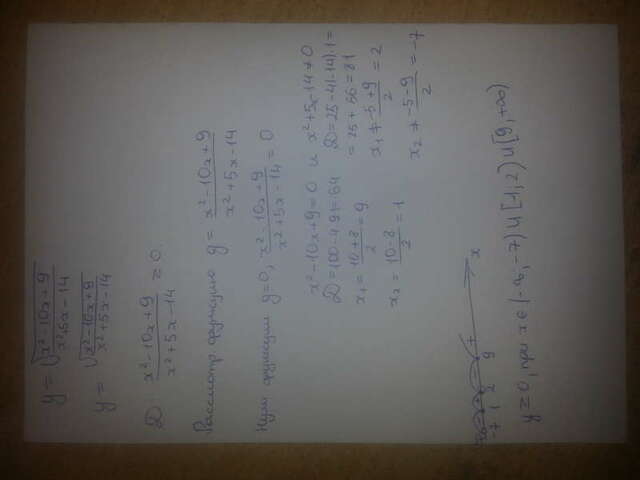 y = √(x²-10x+9 / x²+5x-14)
y = √(x²-10x+9 / x²+5x-14)
D: x²-10x+9 / x²+5x-14 ≥ 0.
Рассмотр. функцию y = x²-10x+9 / x²+5x-14
Нули функции y=0, x²-10x+9 / x²+5x-14 = 0
x²-10x+9=0 и x²+5x-14≠0
D=100-4·9·1=64 D=25-4(-14)·1=
x₁ = 10+8 / 2 = 9 = 25+56=81
x₂ = 10-8 / 2 = 1 x₁ ≠ -5+9 / 2 = 2
x₂ ≠ -5-9 / 2 = -7
-7 1 2 9 + x
y≥0, при x∈(-∞,-7)∪[1,2)∪[9,+∞)